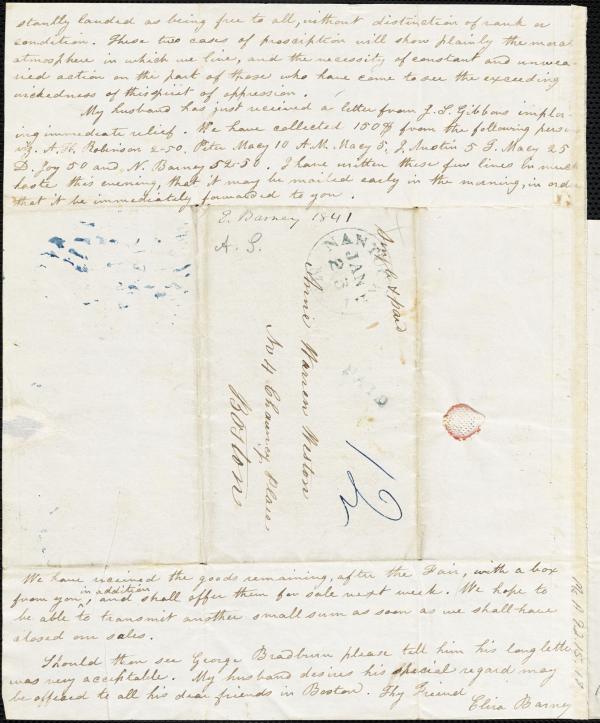 stantly landed as being free to all, without distinction of rank or
condition. These two cases of proscription will show plainly the moral
atmosphere in which we live, and the necessity of constant and unwea-
ried action on the part of those who have come to see the exceeding
wickedness of this spirit of oppression.
My husband has just received a letter from J. S. Gibbons implor-
ing immediate relief. We have collected 150$ from the following persons
A. H. Robinson 2-50. Peter Macy 10 A. M. Macy 5, J. Austin 5 T. Macy 25
D. Joy 50 and N. Barney 52-50. I have written these few lines in much
haste this evening, that it may be mailed early in the morning, in order
that it be immediately forwarded to you.
E. Barney 1841
A. S.
NANTUCKET
JAN
25
Single & paid
PAID
12
Anne Warren Weston
No 4 Chauncy Place
Boston
We have received the goods remaining, after the Fair, with a box
from you, in addition, and shall offer them for sale next week. We hope to
be able to transmit another small sum as soon as we shall have
closed our sales.
Should thou see George Bradburn please tell him his long letter
was very acceptable. My husband desires his special regard may
be offered to all his dear friends in Boston. Thy Friend
Eliza Barney